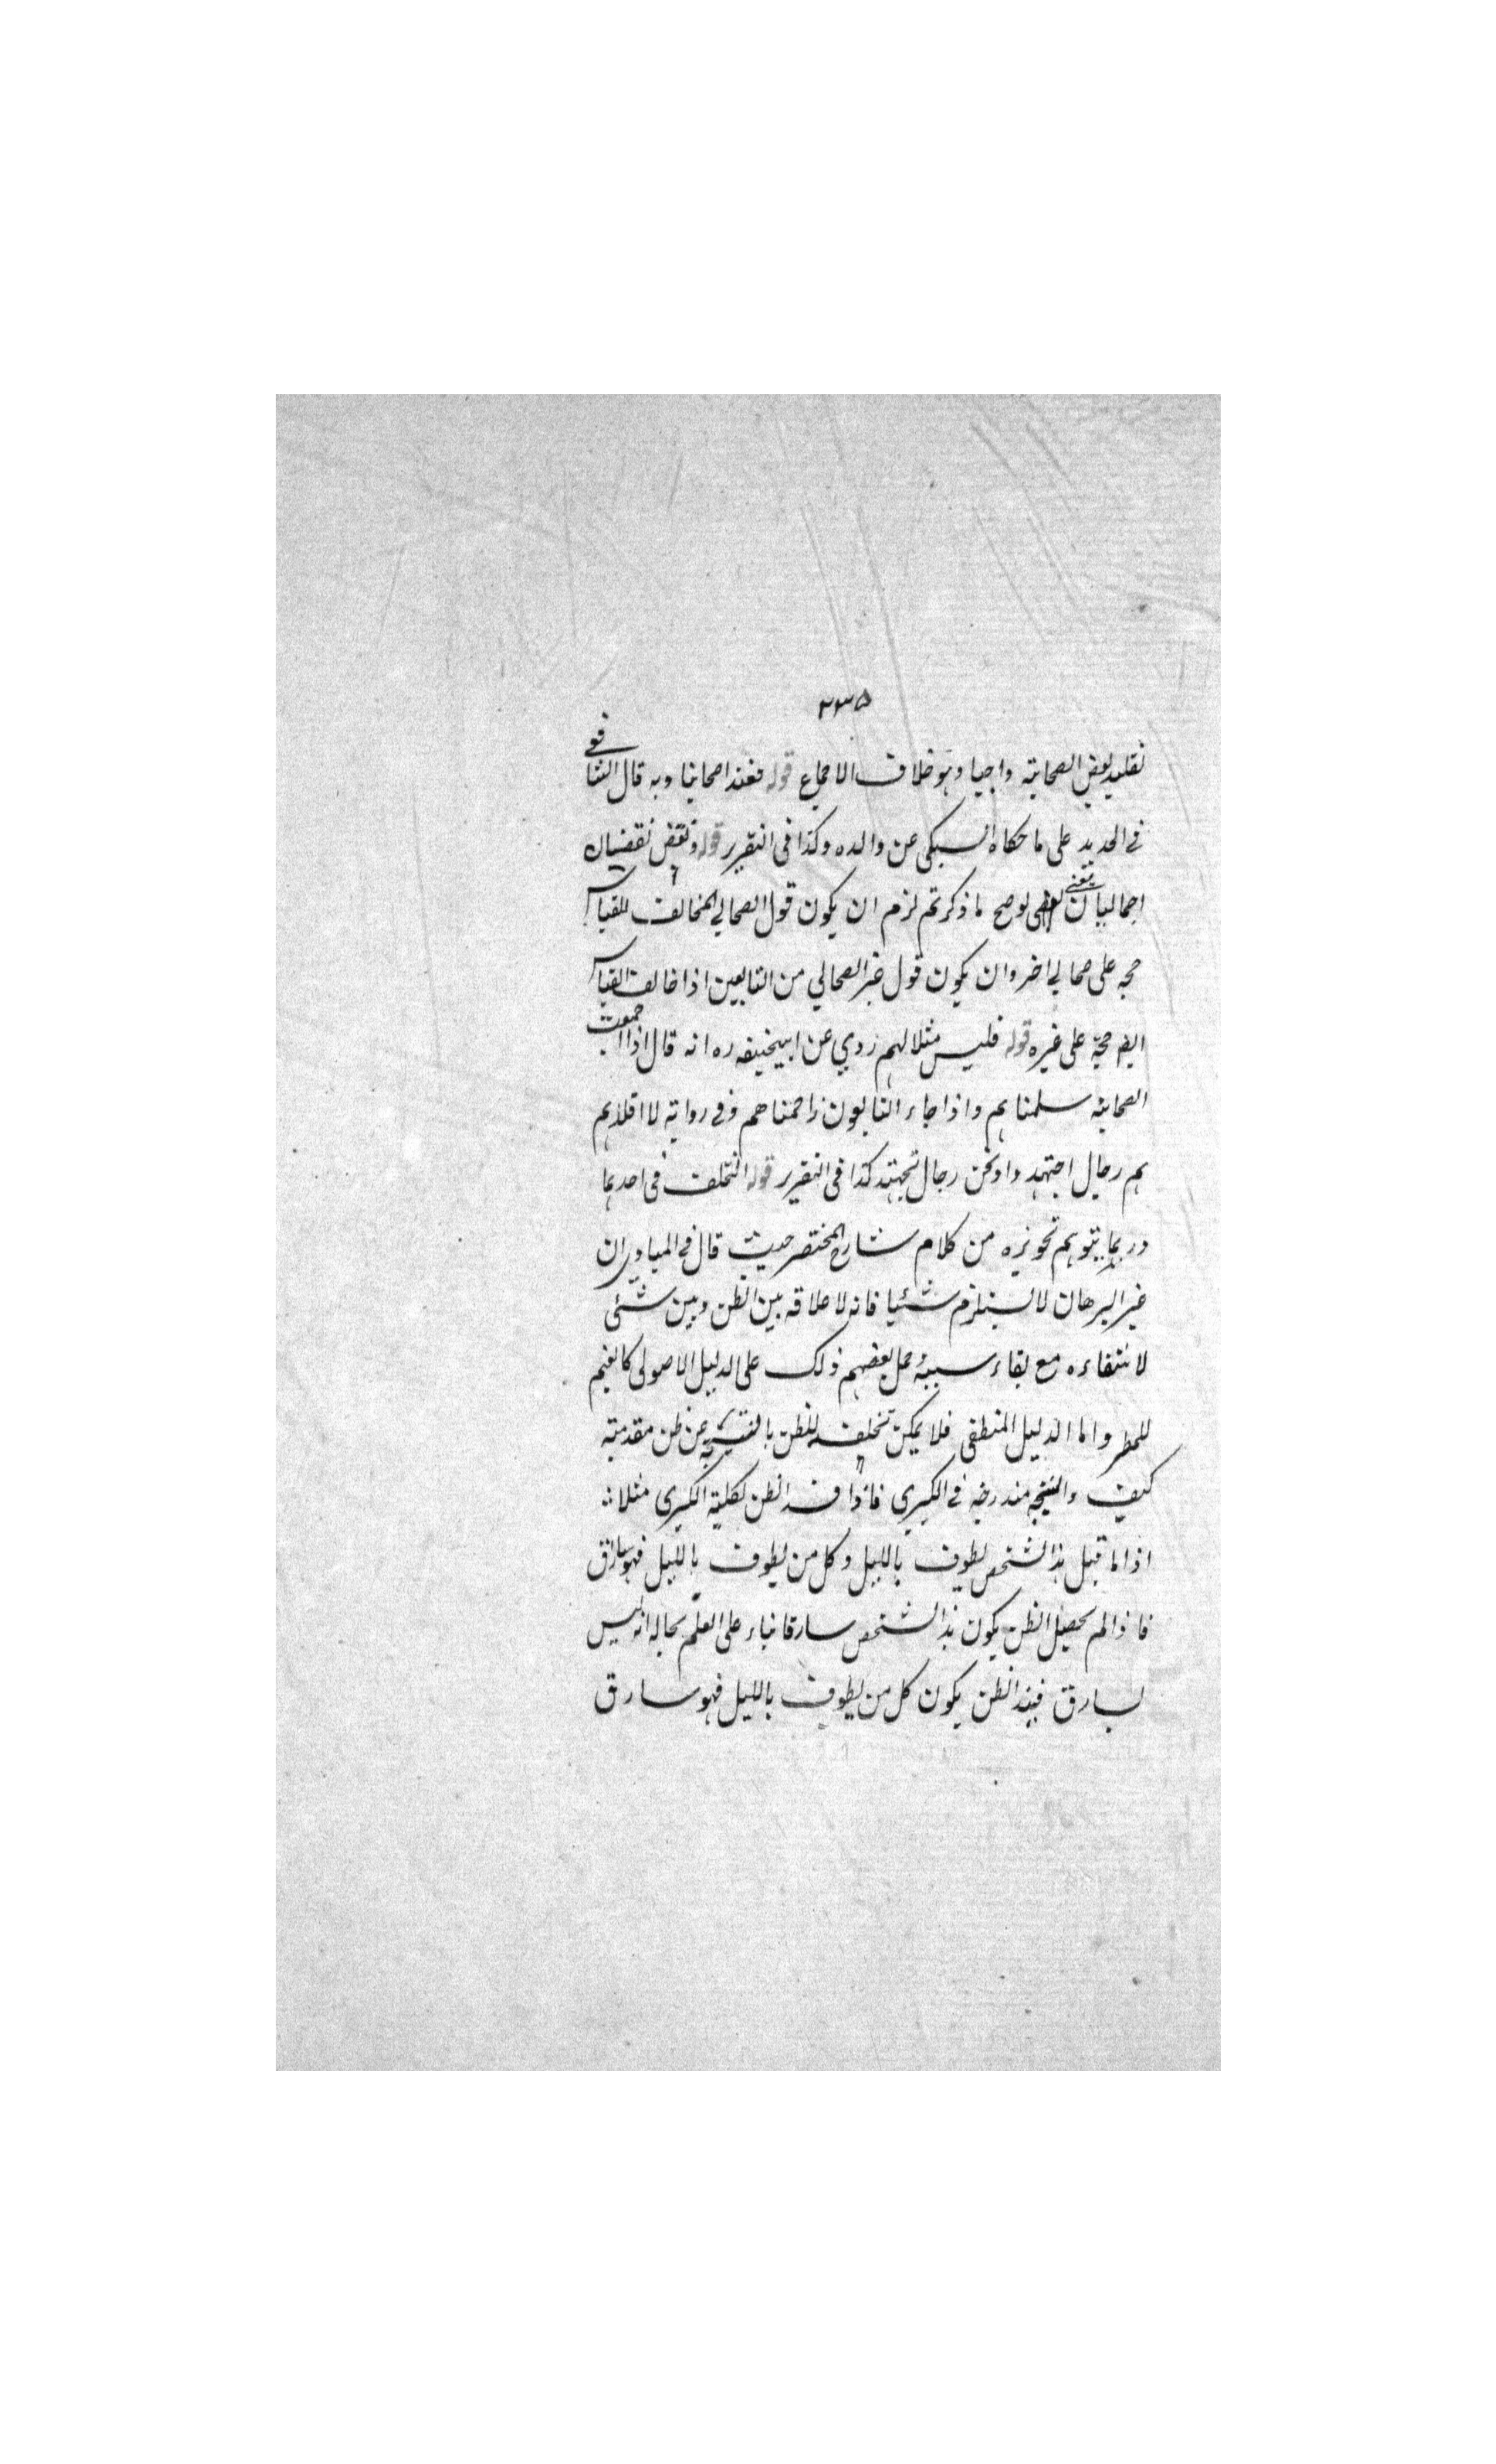 ٢٣٥
تقليد بعض الصحابة واجبا وهو خلاف الاجماع قوله فعند اصحابنا وبه قال الشافعي
في الجديد على ما حكاه السبكي عن والده وكذا في التقرير قوله ونقض نقضان
اجماليان يعني لو صح ما ذكرتم لزم ان يكون قول الصحابي المخالف للقياس
حجة على صحابي اخر وان يكون قول غير الصحابي من التابعين اذا خالف القياس
ايضا حجة على غيره قوله فليس مثلا لهم روي عن ابيحنيفه ره انه قال اذا اجمعت
الصحابة سلمناهم واذا جاء التابعون زاحمناهم وفي رواية لا اقلدهم
هم رجال اجتهدوا ونحن رجال نجتهد كذا في التقرير قوله التخلف في احدهما
وربما يتوهم تجويزه من كلام شارح المختصر حيث قال في المبادي ان
غير البرهان لا يستلزم شيئا فانه لا علاقة بين الظن وبين شئ
لانتفاءه مع بقاء سببه حمل بعضهم ذلك على الدليل الاصولي كالغيم
للمطر واما الدليل المنطقي فلا يمكن تخلف الظن بالنتيجة عن ظن مقدمتيه
كيف والنتيجة مندرجة في الكبرى فاذا الظن لكلية الكبرى مثلا
اذا ما قيل هذا الشخص يطوف بالليل وكل من يطوف بالليل فهو سارق
فاذا لم يحصل الظن يكون هذا الشخص سارقا بناء على العلم بحاله انه ليس
بسارق فيند الظن يكون كل من يطوف بالليل فهو سارق